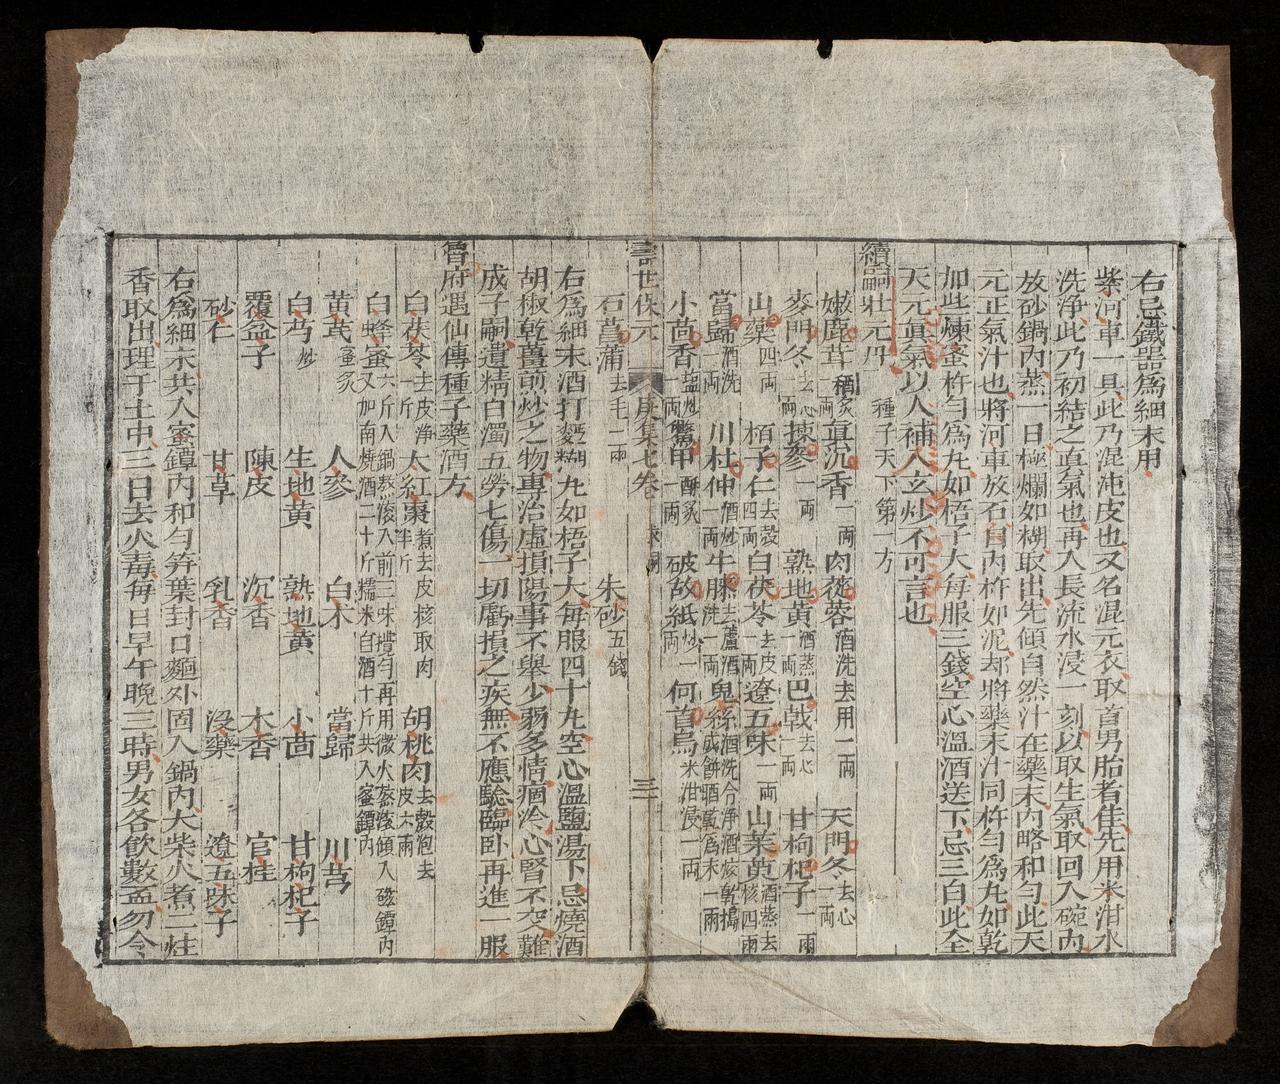 右忌鐵器爲細末用
紫河車一具此乃混沌皮也又名混元衣取首男胎者佳先用米泔水
洗淨此乃初結之眞氣也再入長流水浸一刻以取生氣取回入碗內
放砂鍋內蒸一日極爛如糊取出先傾自然汁在藥末內略和勻此天
元正氣汁也將河車放石臼內杵如泥却將藥末汁同杵勻爲丸如乾
加些煉蜜杵勻爲丸如梧子大每服三錢空心溫酒送下忌三白此全
天元眞氣以人補人玄妙不可言也
續嗣壯元丹 種子天下第一方
嫩鹿茸酒炙一兩 眞沉香一兩 肉蓯蓉酒洗去用一兩 天門冬去心一兩
麥門冬去心一兩 揀參一兩 熟地黃酒蒸一兩 巴戟去心一兩 甘枸杞子一兩
山藥四兩 栢子仁去殼四兩 白茯苓去皮一兩 遼五味一兩 山茱萸酒蒸去核四兩
當歸酒洗一兩 川杜仲酒炒一兩 牛膝去蘆酒洗一兩 鬼絲酒洗令淨酒㷛乾搗成餠晒乾爲末一兩
小茴香盐炒一兩 鱉甲酥炙一兩 破故紙炒一兩 何首烏米泔浸一兩
壽世保元 庚集七卷 求嗣 三
石菖蒲去毛二兩 朱砂五錢
右爲細末酒打麪糊丸如梧子大每服四十九空心溫鹽湯下忌燒酒
胡椒乾薑煎炒之物專治虛損陽事不舉少弱多情痼冷心腎不交難
成子嗣遺精白濁五勞七傷一切虧損之疾無不應驗臨臥再進一服
魯府遇仙傳種子藥酒方
白茯苓去皮淨一斤 大紅棗煮去皮核取肉半斤 胡桃肉去殼泡去皮六兩
白蜂蜜六斤入鍋熬滾入前三味攪勻再用微火熬滾傾入磁罈內又加南燒酒二十斤糯米白酒十斤共入蜜罈內
黃芪蜜炙 人參 白朮 當歸 川芎
白芍炒 生地黃 熟地黃 小茴 甘枸杞子
覆盆子 陳皮 沉香 木香 官桂
砂仁 甘草 乳香 沒藥 遼五味子
右爲細末共入蜜罈內和勻笋葉封口麵外固入鍋內大柴火煮二炷
香取出埋于土中三日去火毒每日早午晚三時男女各飲數盃勿令